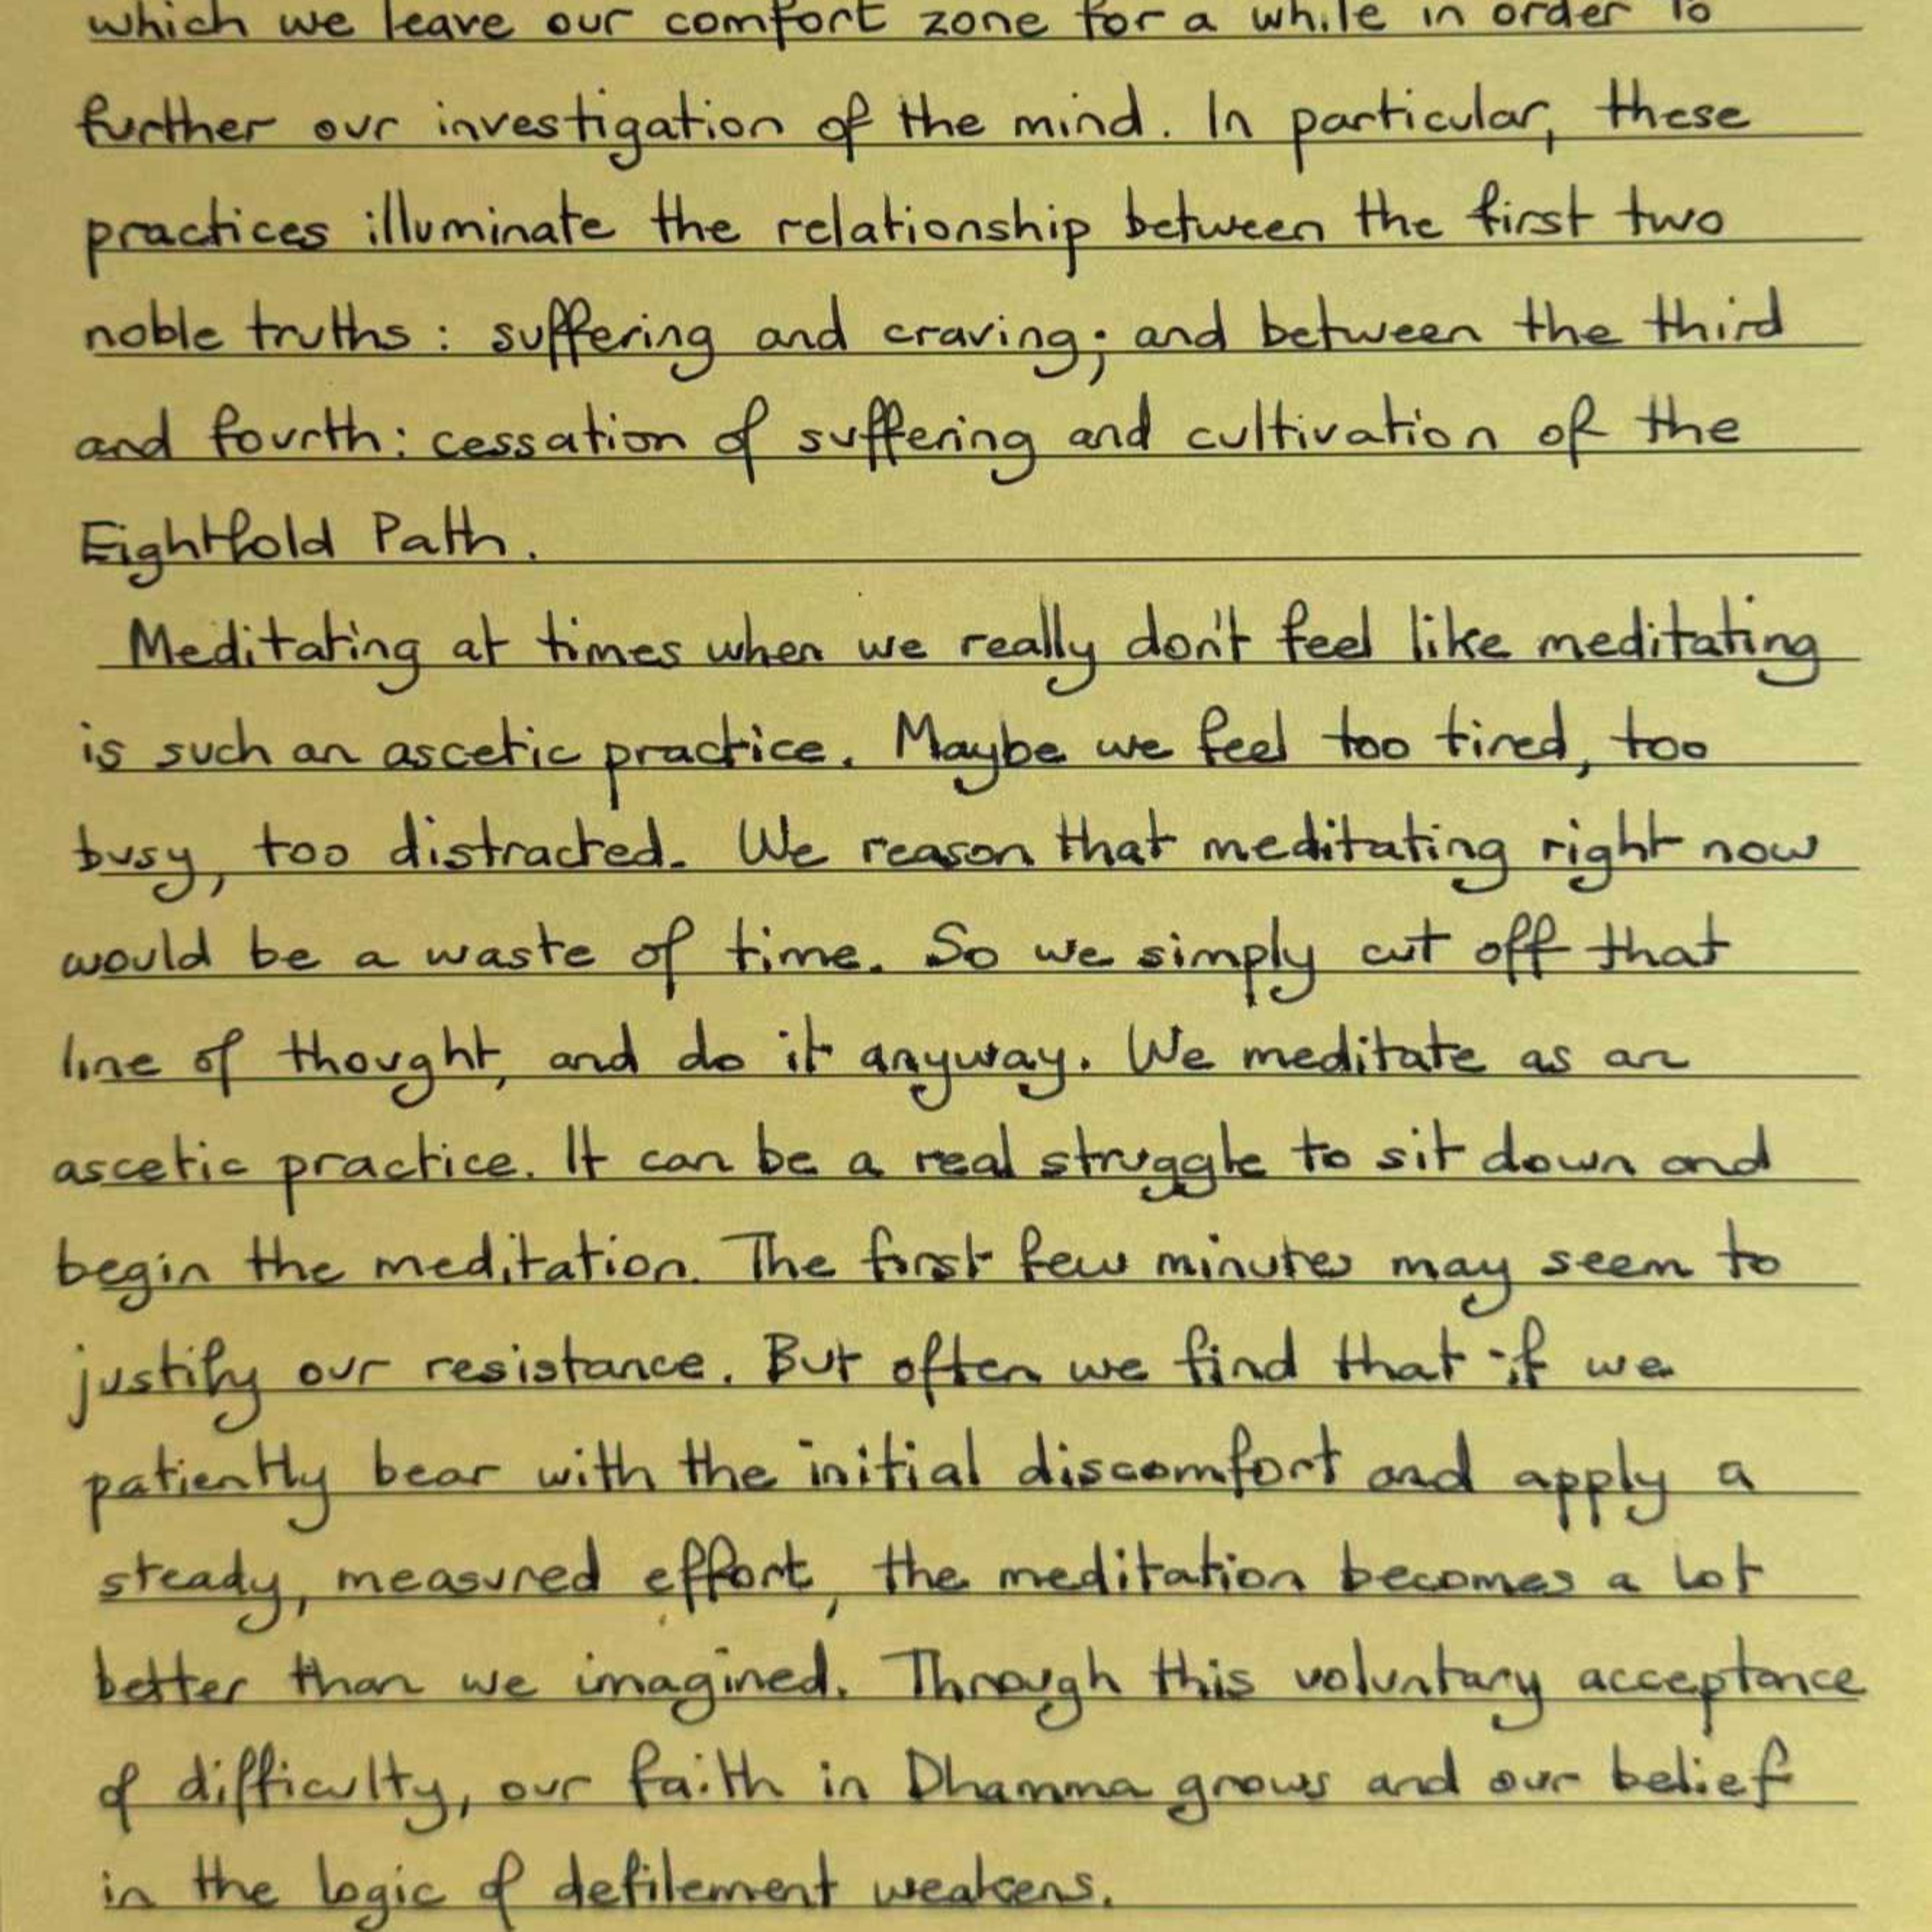 which we leave our comfort zone for a while in order to
further our investigation of the mind. In particular, these
practices illuminate the relationship between the first two
noble truths: suffering and craving; and between the third
and fourth: cessation of suffering and cultivation of the
Eightfold Path.
Meditating at times when we really don't feel like meditating
is such an ascetic practice. Maybe we feel too tired, too
busy, too distracted. We reason that meditating right now
would be a waste of time. So we simply cut off that
line of thought, and do it anyway. We meditate as an
ascetic practice. It can be a real struggle to sit down and
begin the meditation. The first few minutes may seem to
justify our resistance. But often we find that if we
patiently bear with the initial discomfort and apply a
steady, measured effort, the meditation becomes a lot
better than we imagined. Through this voluntary acceptance
of difficulty, our faith in Dhamma grows and our belief
in the logic of defilement weakens.